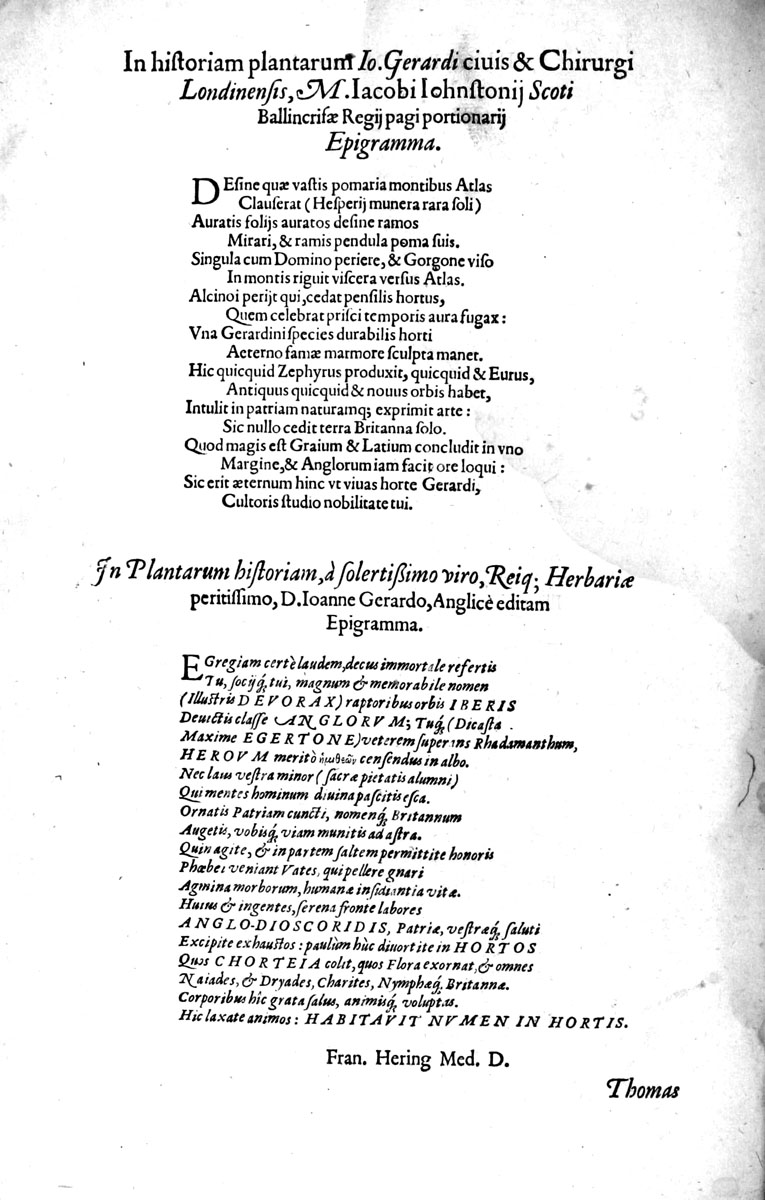 In hiſtoriam plantarum Io. Gerardi ciuis & Chirurgi
Londinenſis, M. Iacobi Iohnſtonij Scoti
Ballincriſæ Regij pagi portionarij
Epigramma.
DEſine quæ vaſtis pomaria montibus Atlas
Clauſerat (Heſperij munera rara ſoli)
Auratis folijs auratos deſine ramos
Mirari, & ramis pendula poma ſuis.
Singula cum Domino periere, & Gorgone viſo
In montis riguit viſcera verſus Atlas.
Alcinoi perijt qui, cedat penſilis hortus,
Quem celebrat priſci temporis aura fugax:
Vna Gerardini ſpecies durabilis horti
Aeterno famæ marmore ſculpta manet.
Hic quicquid Zephyrus produxit, quicquid & Eurus,
Antiquus quicquid & nouus orbis habet,
Intulit in patriam naturamq; exprimit arte:
Sic nullo cedit terra Britanna ſolo.
Quod magis eſt Graium & Latium concludit in vno
Margine, & Anglorum iam facit ore loqui:
Sic erit æternum hinc vt viuas horte Gerardi,
Cultoris ſtudio nobilitate tui.
In Plantarum hiſtoriam, à ſolertißimo viro, Reiq; Herbariæ
peritiſſimo, D. Ioanne Gerardo, Anglicè editam
Epigramma.
EGregiam certè laudem, decus immortale refertis
Tu, ſocijq́, tui, magnum & memorabile nomen
(Illuſtris DEVORAX) raptoribus orbis IBERIS
Deuictis claſſe ANGLORVM; Tuq́, (Dicaſta
Maxime EGERTONE) veterem ſuperans Rhadamanthum,
HEROVM meritò ἡμιθεῶν cenſendus in albo.
Nec laus veſtra minor (ſacræ pietatis alumni)
Qui mentes hominum diuina paſcitis eſca.
Ornatis Patriam cuncti, nomenq́, Britannum
Augetis, vobisq́, viam munitis ad aſtra.
Quin agite, & in partem ſaltem permittite honoris
Phœbei veniant Vates, qui pellere gnari
Agmina morborum, humanæ inſidiantia vitæ.
Huius & ingentes, ſerena fronte labores
ANGLO-DIOSCORIDIS, Patriæ, veſtræq́, ſaluti
Excipite exhauſtos: paulum hùc diuortite in HORTOS
Quos CHORTEIA colit, quos Flora exornat, & omnes
Naiades, & Dryades, Charites, Nymphæq́, Britannæ.
Corporibus hîc grata ſalus, animisq́, voluptas.
Hic laxate animos: HABITAVIT NVMEN IN HORTIS.
Fran. Hering Med. D.
Thomas